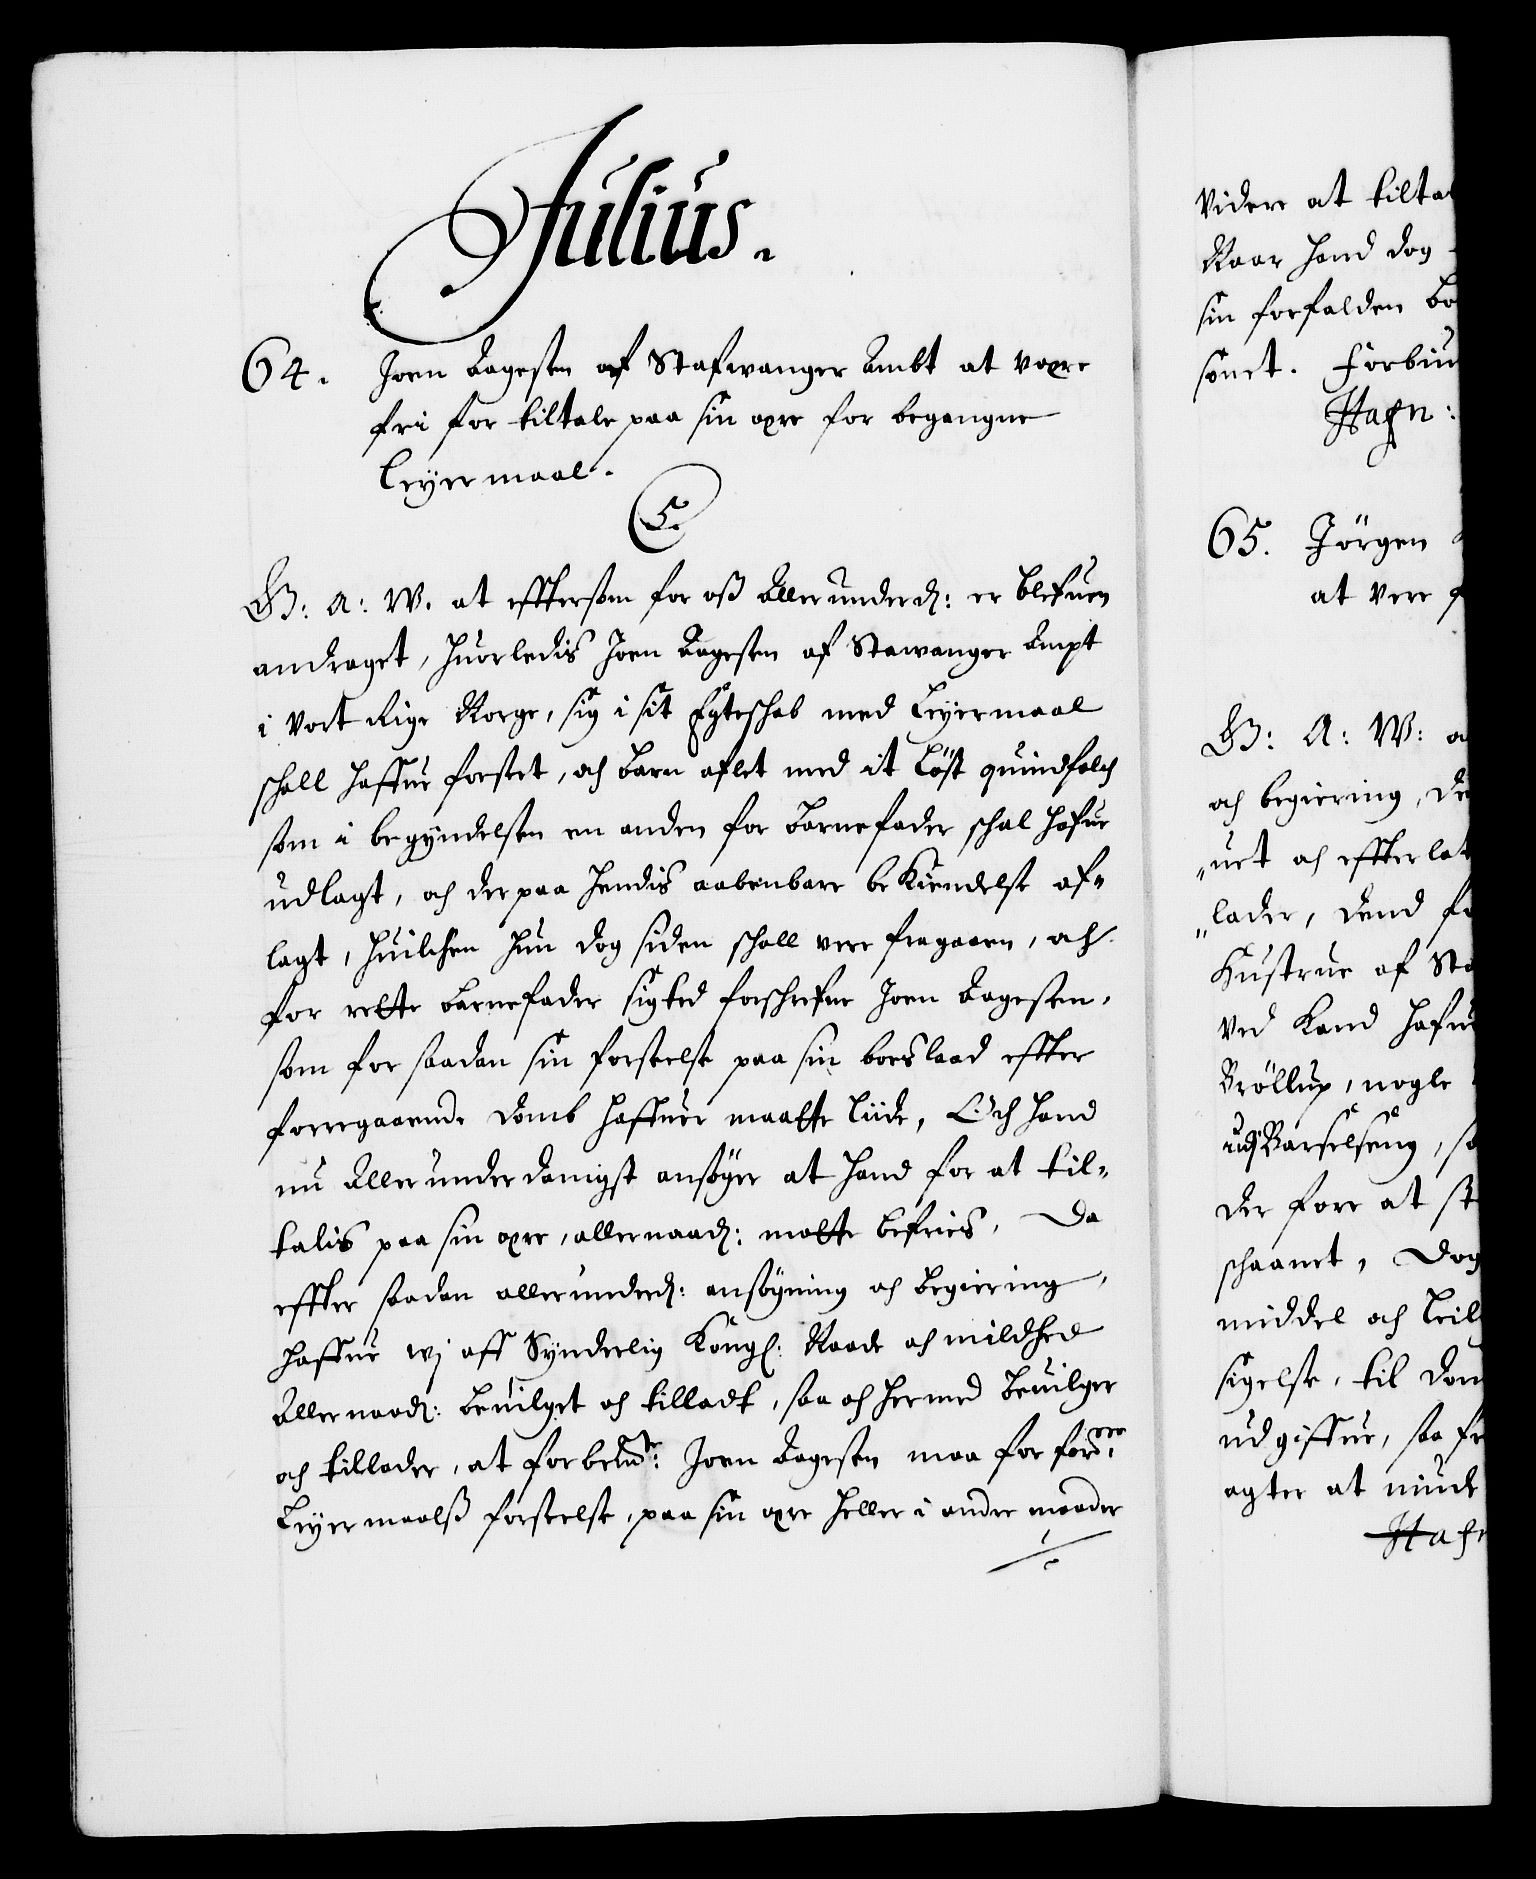 Julius.
64. Joen Aagesten af Stafwanger Ambt at være
fri for tiltale paa sin øxre for begangne
Leyermaal.
C. 5.
G: A: W. at effttersom for oß Allerunderd: er blefuen
andraget, huorledis Joen Aagesten af Stawanger Ampt
i vort Rige Norge, sig i sit Egteschab med Leyermaal
schall haffue forseet, och barn aflet med it Løst quindfolch
som i begyndelsen en anden for barnefader schal hafue
udlagt, och der paa hendis aabenbare bekiendelse af-
lagt, huilchen hun dog siden schall vere fragaaen, och
for rette barnefader sigted forschrefne Joen Aagesten,
som for saadan sin forseelse paa sin boeslaad effter
foregaaende domb haffuer maatte liide, Och hand
nu Allerunderdanigst ansøger at hand for at til-
talis paa sin øxre, allernaad: motte befries, Da
effter saadan allerunderd: ansøgning och begiering,
haffue wj aff Synderlig Kongl: Naade och mildhed
Allernaad: beuilget och tilladt, saa och hermed beuilger
och tillader, at forbemte: Joen Aagesten maa for forne:
Leyermaalß forseelse, paa sin øxre heller i andre maader
./.
Videre at tilta
Naar hand dog
sin forfalden bo
sonet. Forbiu
Hafn:
65. Jörgen
at vere f
G: A: W: a
och begiering, de
"uet och effterlat
"lader, dend fo
Hustrue af Sta
ved Land hafue
Bröllup, nogle
udj Barselseng, so
der fore at st
schaanet, Dog
middel och leil
sigelse, til dom
udgiffue, saa fr
agter at niude
Hafn